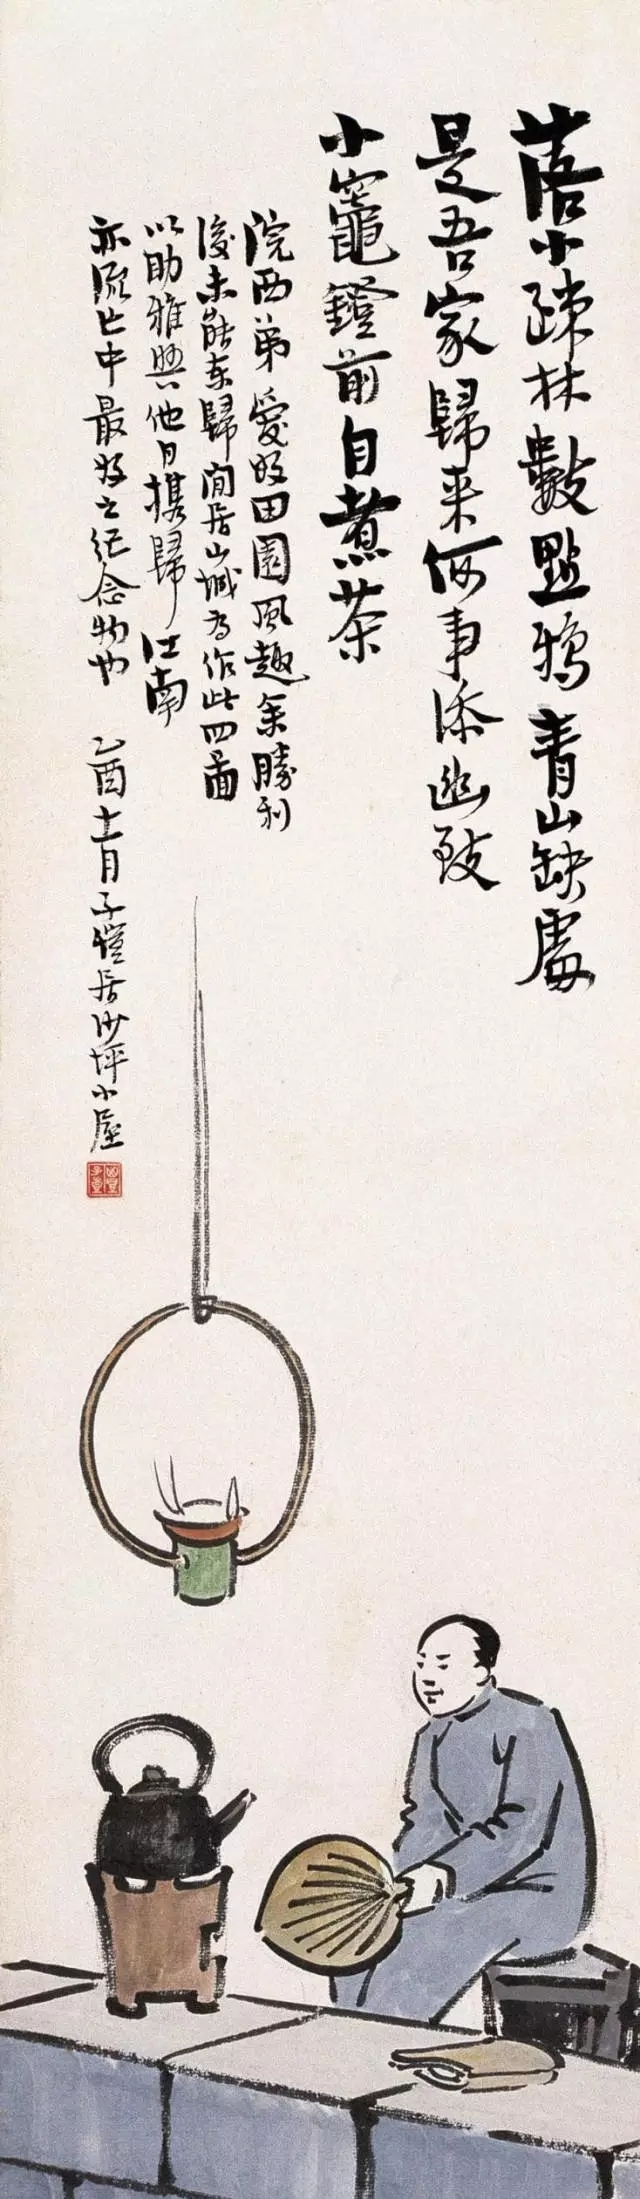 落日疎林數點鴉青山缺處
是吾家歸来何事添幽致
小竈鐙前自煮茶
浣西弟愛好田園風趣余勝利
後未能东歸閒居山城为作此四畵
以助雅興他日携歸江南
亦流亡中最好之纪念物也 乙酉十一月子愷居沙坪小屋